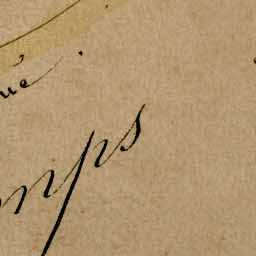 ué
mps